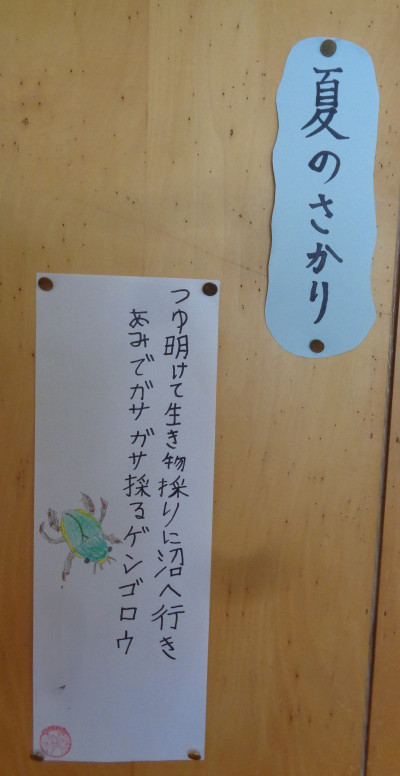 夏のさかり
つゆ明けて生き物採りに沼へ行き
あみでガサガサ採るゲンゴロウ